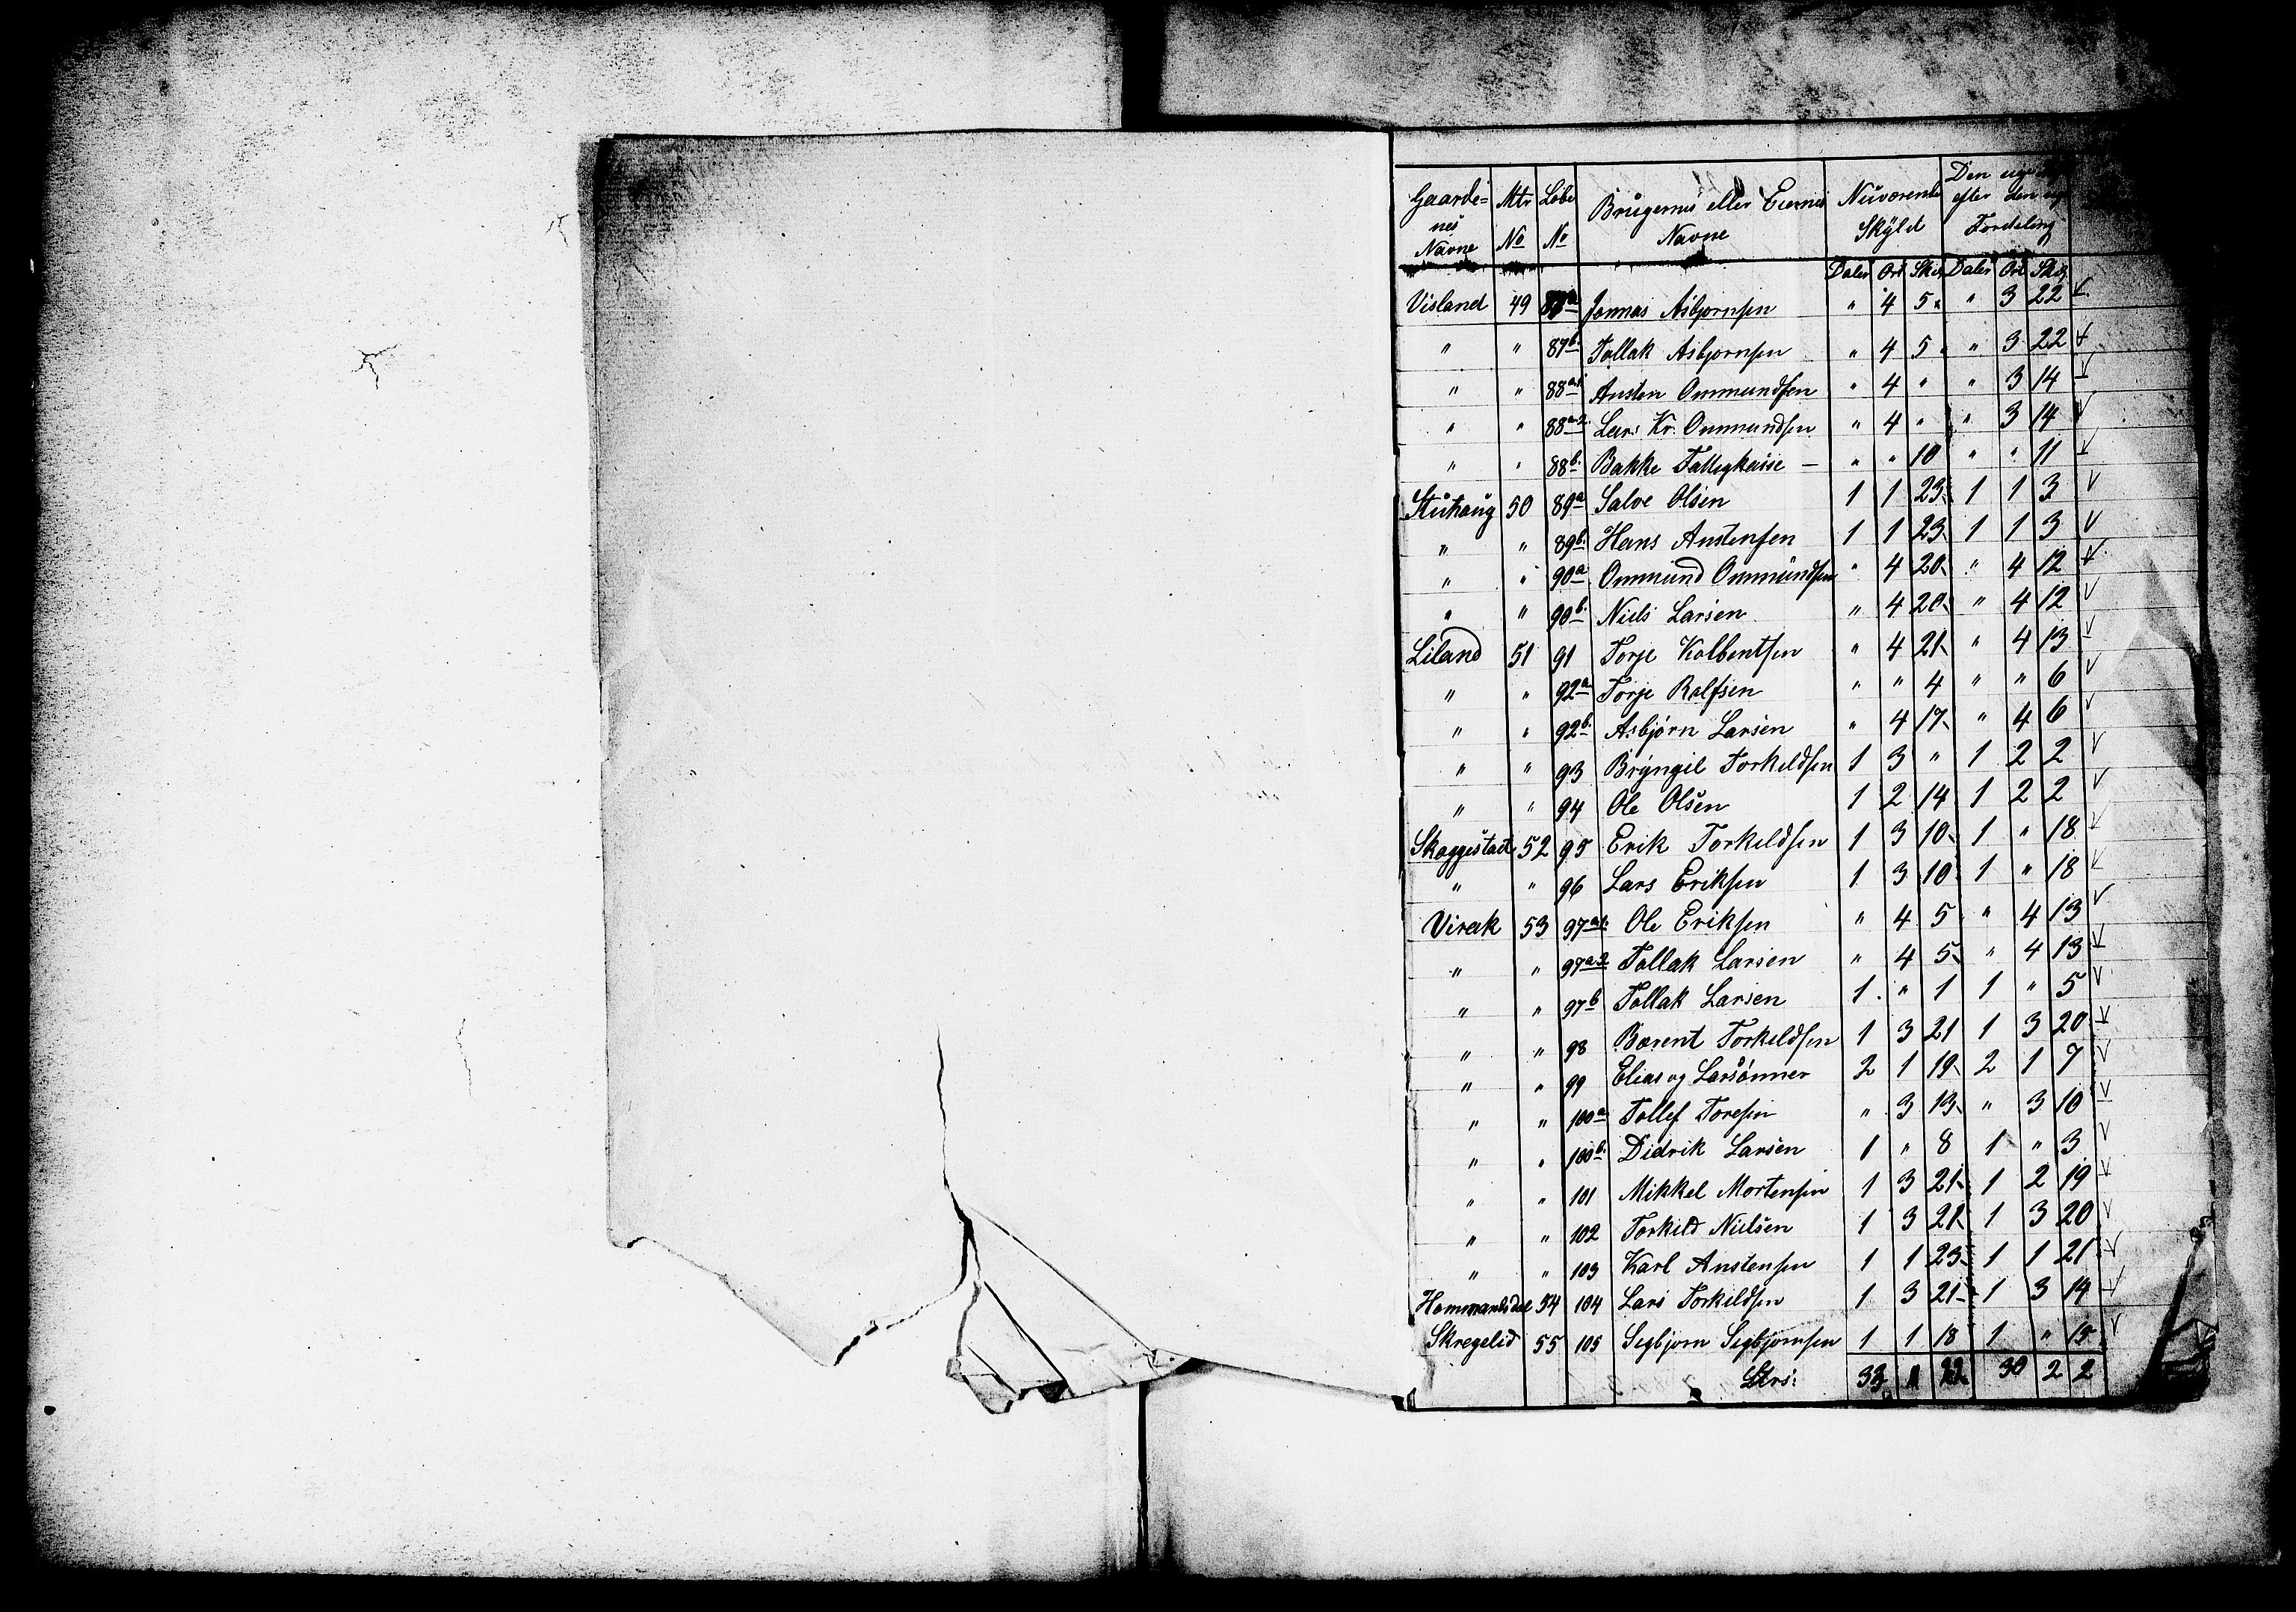 Gaarde= Mtr Løbe Brugernes eller Eiernes Nuværende Den
nes No No Navne Skyld efter den
Navne Fordeling
Daler Ort Skil Daler Ort Skil
Visland 49 87a Jonnas Asbjørnsen " 4 5 " 3 22
" " 87b. Tollak Asbjørnsen " 4 5 " 3 22
" " 88a1 Austen Ommundsen " 4 " " 3 14
" " 88a2 Lars Kr. Ommundsen " 4 " " 3 14
" " 88b. Bakke Fattigkasse — " " 10 " " 11
Stuhaug 50 89a Salve Olsen 1 1 23 1 1 3
" " 89b. Hans Austensen 1 1 23 1 1 3
" " 90a Ommund Ommundsen " 4 20 " 4 12
" " 90b. Niels Larsen " 4 20 " 4 12
Liland 51 91 Torje Kolbentsen " 4 21 " 4 13
" " 92a Torje Rolfsen " " 4 " " 6
" " 92b. Asbjørn Larsen " 4 17 " 4 6
" " 93 Bryngil Torkeldsen 1 3 " 1 2 2
" " 94 Ole Olsen 1 2 14 1 2 2
Skoggestad 52 95 Erik Torkeldsen 1 3 10 1 " 18
" " 96 Lars Eriksen 1 3 10 1 " 18
Virak 53 97a1. Ole Eriksen " 4 5 " 4 13
" " 97a2 Tollak Larsen " 4 5 " 4 13
" " 97b Tollak Larsen 1 " 1 1 " 5
" " 98 Berent Torkeldsen 1 3 21 1 3 20
" " 99 Elias og Larsønner 2 1 19 2 1 7
" " 100a Tollef Toresen " 3 13 " 3 10
" " 100b. Didrik Larsen 1 " 8 1 " 3
" " 101 Mikkel Mortensen 1 3 21 1 2 19
" " 102 Torkild Nielsen 1 3 21 1 3 20
" " 103 Karl Austensen 1 1 23 1 1 21
Hammansdal 54 104 Lars Torkildsen 1 3 21 1 3 14
Skregelid 55 105 Sigbjørn Sigbjørnsen 1 1 18 1 " 15
Lars: 33 22 30 2 2